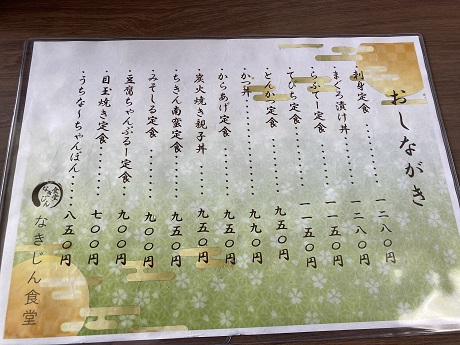 おしながき
・刺身定食………一二八〇円
・まぐろ漬け丼………一二八〇円
・らふてー定食………一一五〇円
・てびち定食………一一五〇円
・とんかつ定食………九五〇円
・かつ丼………九九〇円
・からあげ定食………九五〇円
・炭火焼き親子丼………九五〇円
・ちきん南蛮定食………九五〇円
・みそしる定食………九〇〇円
・豆腐ちゃんぷるー定食………九〇〇円
・目玉焼き定食………七〇〇円
・うちな〜ちゃんぽん………八五〇円
なきじん食堂